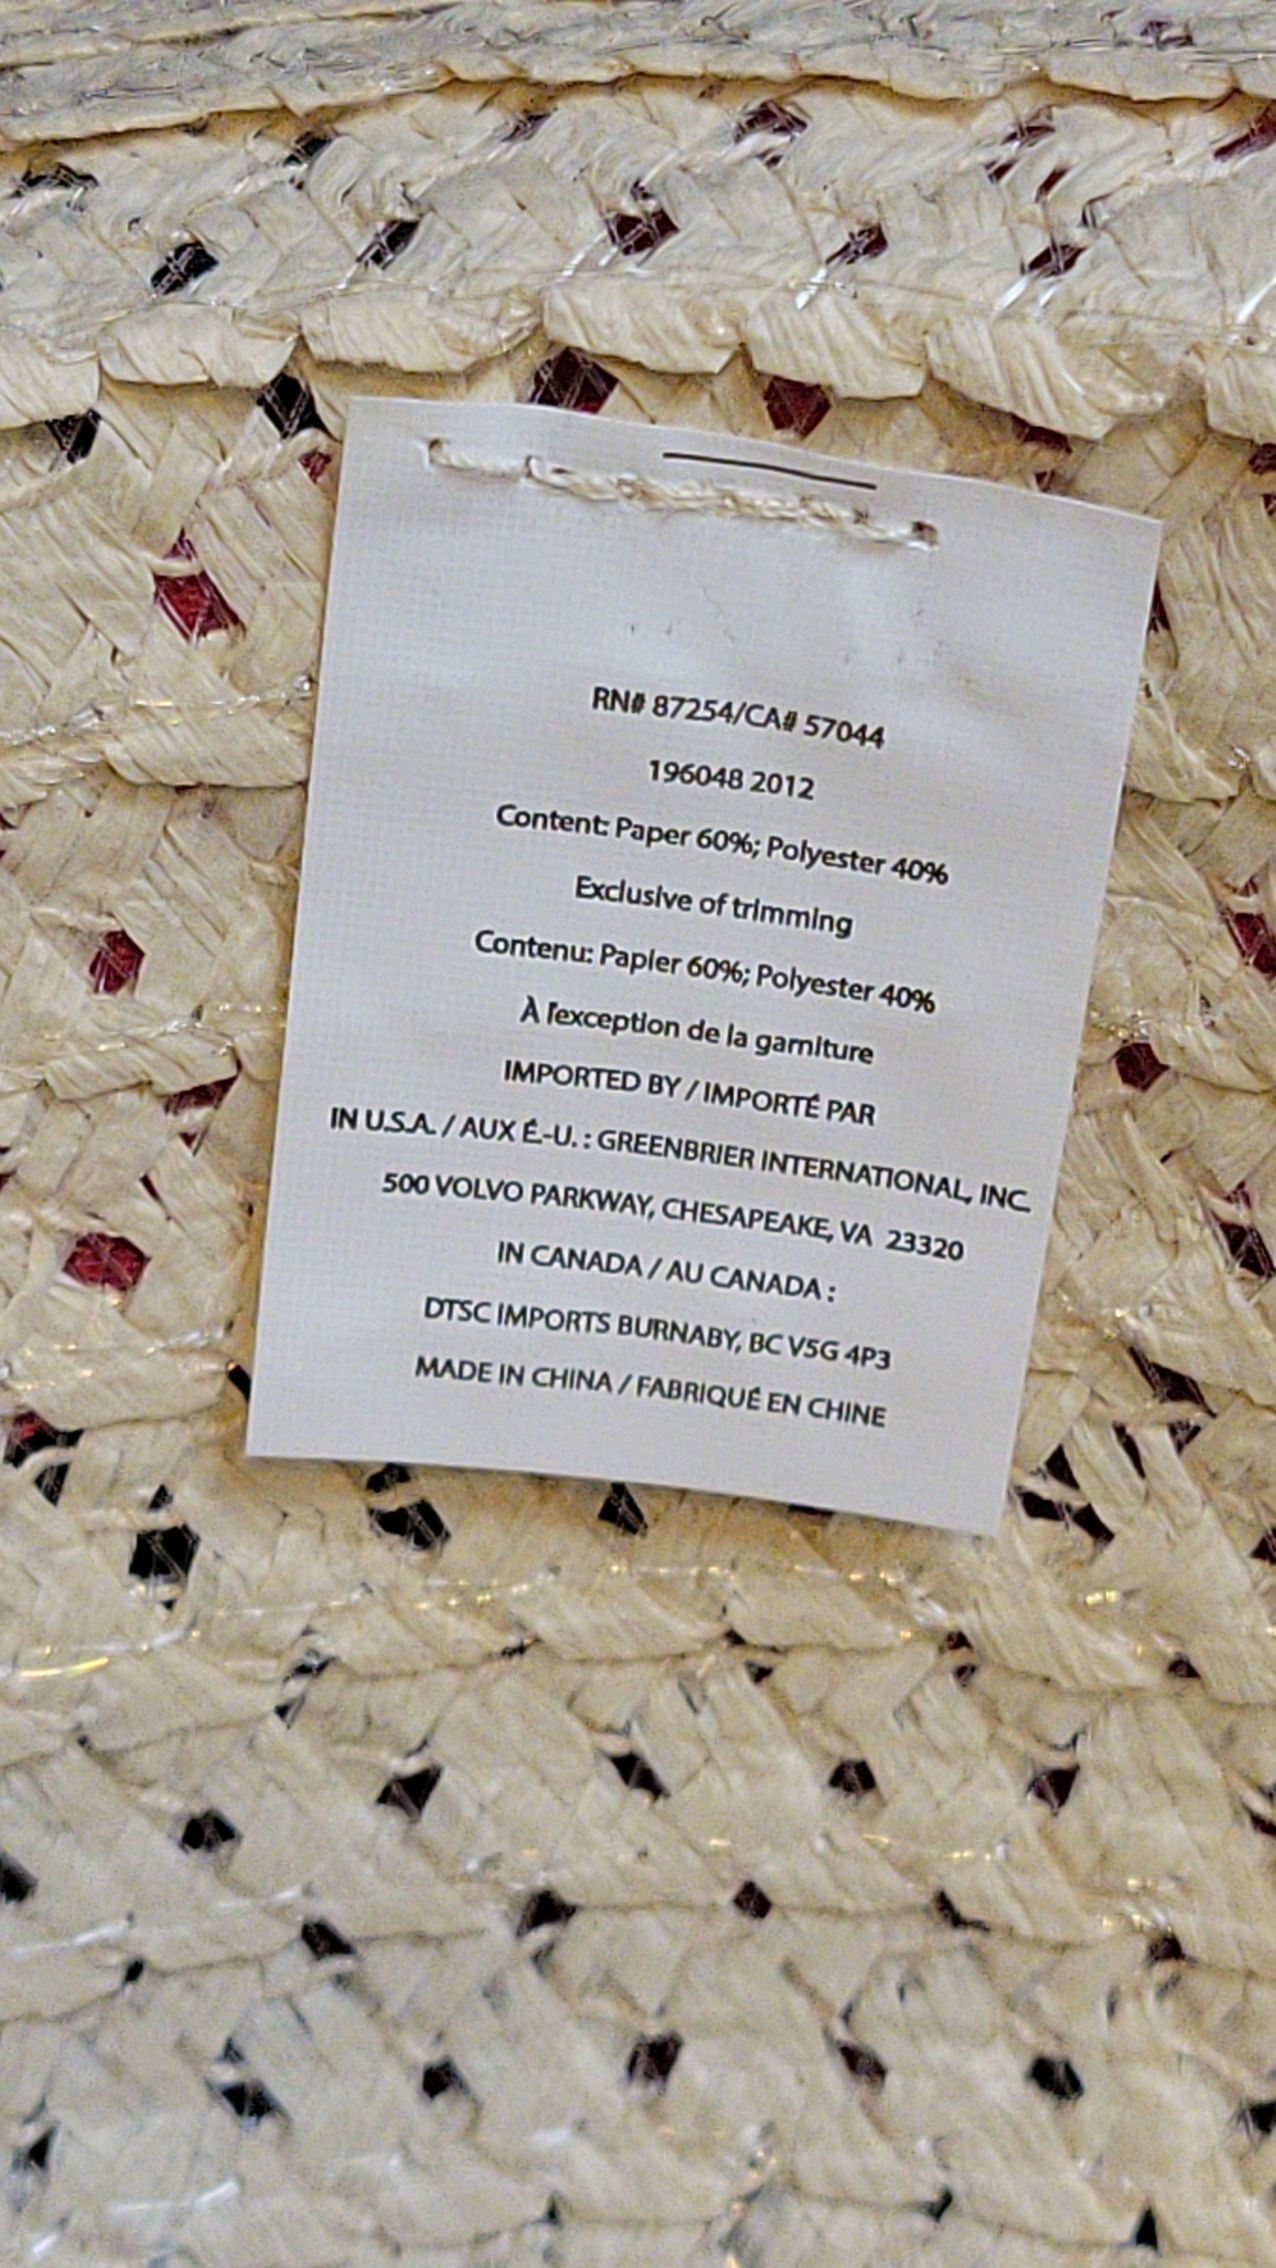 RN# 87254/CA# 57044
196048 2012
Content: Paper 60%; Polyester 40%
Exclusive of trimming
Contenu: Papier 60%; Polyester 40%
À l'exception de la garniture
IMPORTED BY / IMPORTÉ PAR
IN U.S.A. / AUX É.-U. : GREENBRIER INTERNATIONAL, INC.
500 VOLVO PARKWAY, CHESAPEAKE, VA 23320
IN CANADA / AU CANADA :
DTSC IMPORTS BURNABY, BC V5G 4P3
MADE IN CHINA / FABRIQUÉ EN CHINE